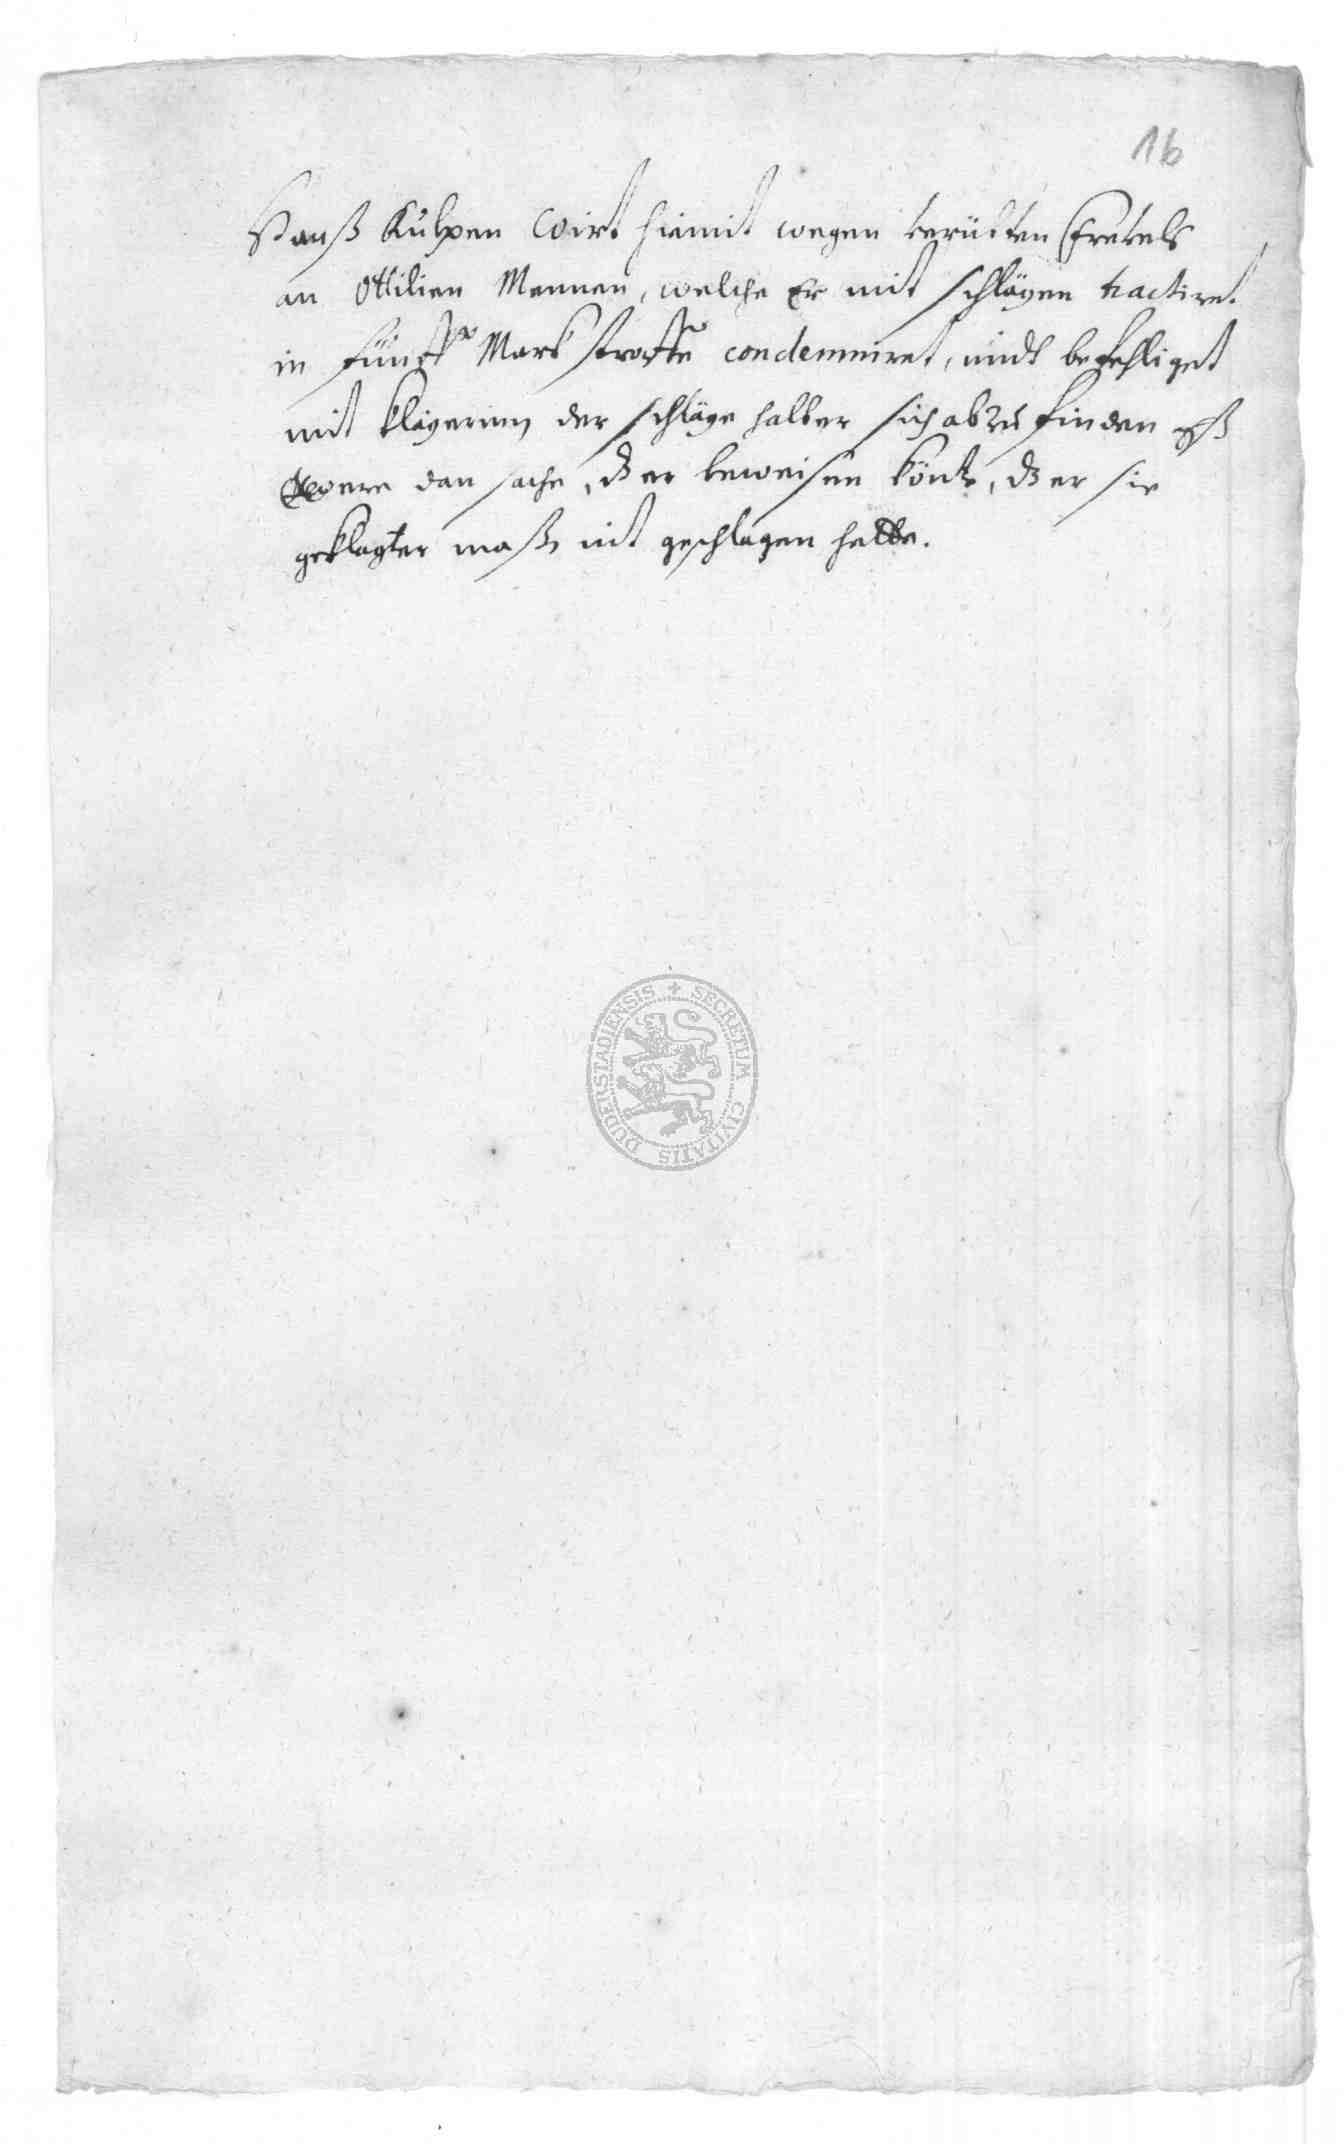 16
Hanß Kulpen Wirt hiemit wegen verübten Frevels
an Ottilien Mennen, welche Er mit schlägen tractiret
in fünff Mark straffe condemniret, undt befehliget
mit klägerinn der schläge halber sich abzufinden eß
were dan sache, dz er beweisen könte, dz er sie
geklagter maßen nit geschlagen hette.
SECRETUM CIVITATIS DUDERSTADIENSIS